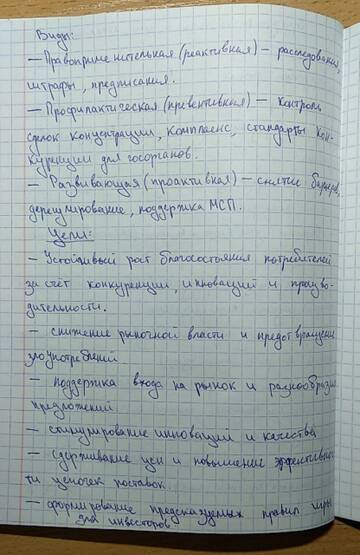 Виды:
— Правоприменительная (реактивная) — расследования,
штрафы, предписания.
— Профилактическая (превентивная) — контроль
сделок концентрации, комплаенс, стандарты кон-
куренции для госорганов.
— Развивающая (проактивная) — снятие барьеров,
дерегулирование, поддержка МСП.
Цели:
— Устойчивый рост благосостояния потребителей
за счёт конкуренции, инноваций и произво-
дительности.
— снижение рыночной власти и предотвращение
злоупотреблений
— поддержка входа на рынок и разнообразия
предложений
— стимулирование инноваций и качества
— сдерживание цен и повышение эффективнос-
ти цепочек поставок
— формирование предсказуемых правил игры
для инвесторов